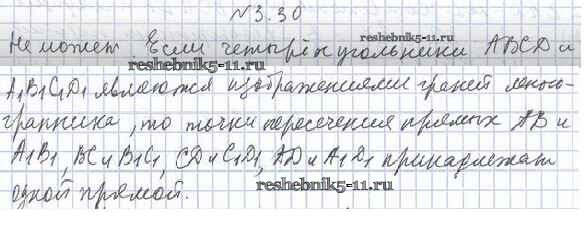 №3.30
reshebnik5-11.ru
Не может. Если четырёхугольники ABCD и
reshebnik5-11.ru
A₁B₁C₁D₁ являются изображениями граней много-
гранника, то точки пересечения прямых AB и
A₁B₁, BC и B₁C₁, CD и C₁D₁, AD и A₁D₁ принадлежат
одной прямой.
reshebnik5-11.ru